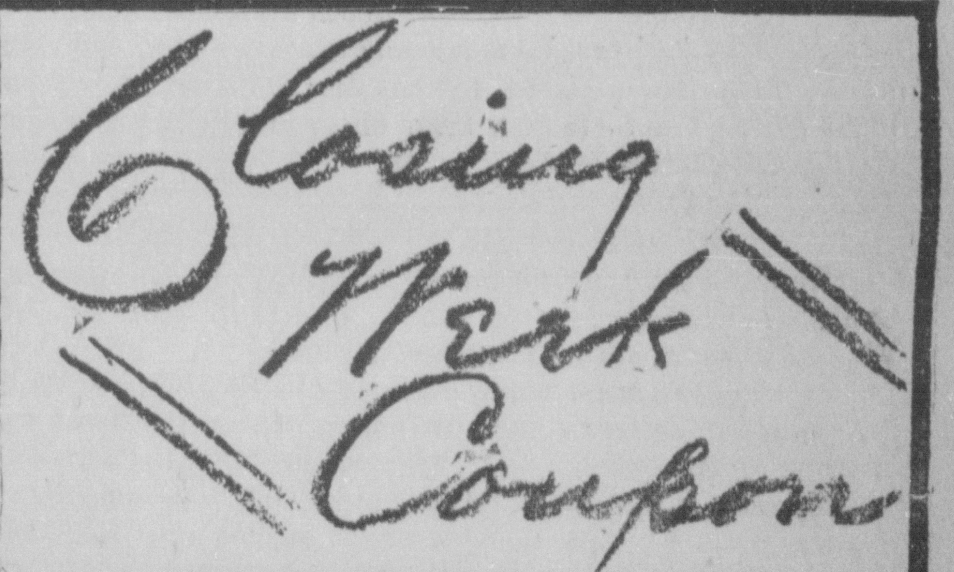 Closing
Week
Coupon